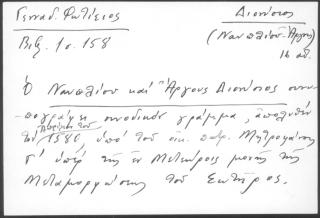 Γενναδ. Φωτίειος Διονύσιος
Βιβ. 1ο. 158 (Ναυπλίου-Άργους)
16 αι.
Ὁ Ναυπλίου καὶ Ἄργους Διονύσιος συνυ-
πογράφει συνοδικὸν γράμμα, ἀπολυθὲν
1580 ὑπὸ τοῦ οἰκ. πατρ. Μητροφάνους
Γ' ὑπὲρ τῆς ἐν Μετεώροις μονῆς τῆς
Μεταμορφώσεως τοῦ Σωτῆρος.